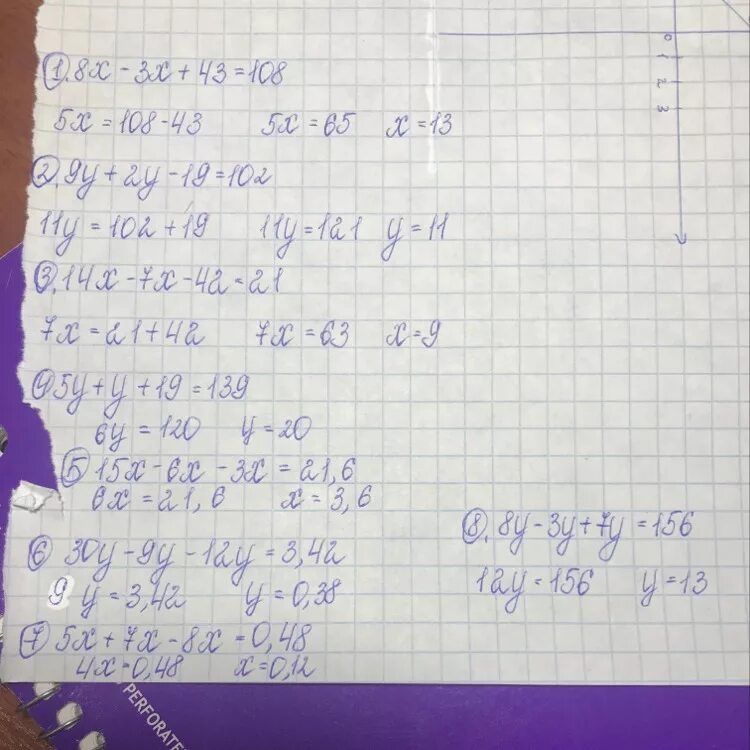 1. 8x - 3x + 43 = 108
5x = 108 - 43 5x = 65 x = 13
2. 9y + 2y - 19 = 102
11y = 102 + 19 11y = 121 y = 11
3. 14x - 7x - 42 = 21
7x = 21 + 42 7x = 63 x = 9
4 5y + y + 19 = 139
6y = 120 y = 20
5 15x - 6x - 3x = 21,6
6x = 21,6 x = 3,6
6 30y - 9y - 12y = 3,42
9y = 3,42 y = 0,38
7 5x + 7x - 8x = 0,48
4x = 0,48 x = 0,12
8. 8y - 3y + 7y = 156
12y = 156 y = 13
0
1
2
3
PERFORATE